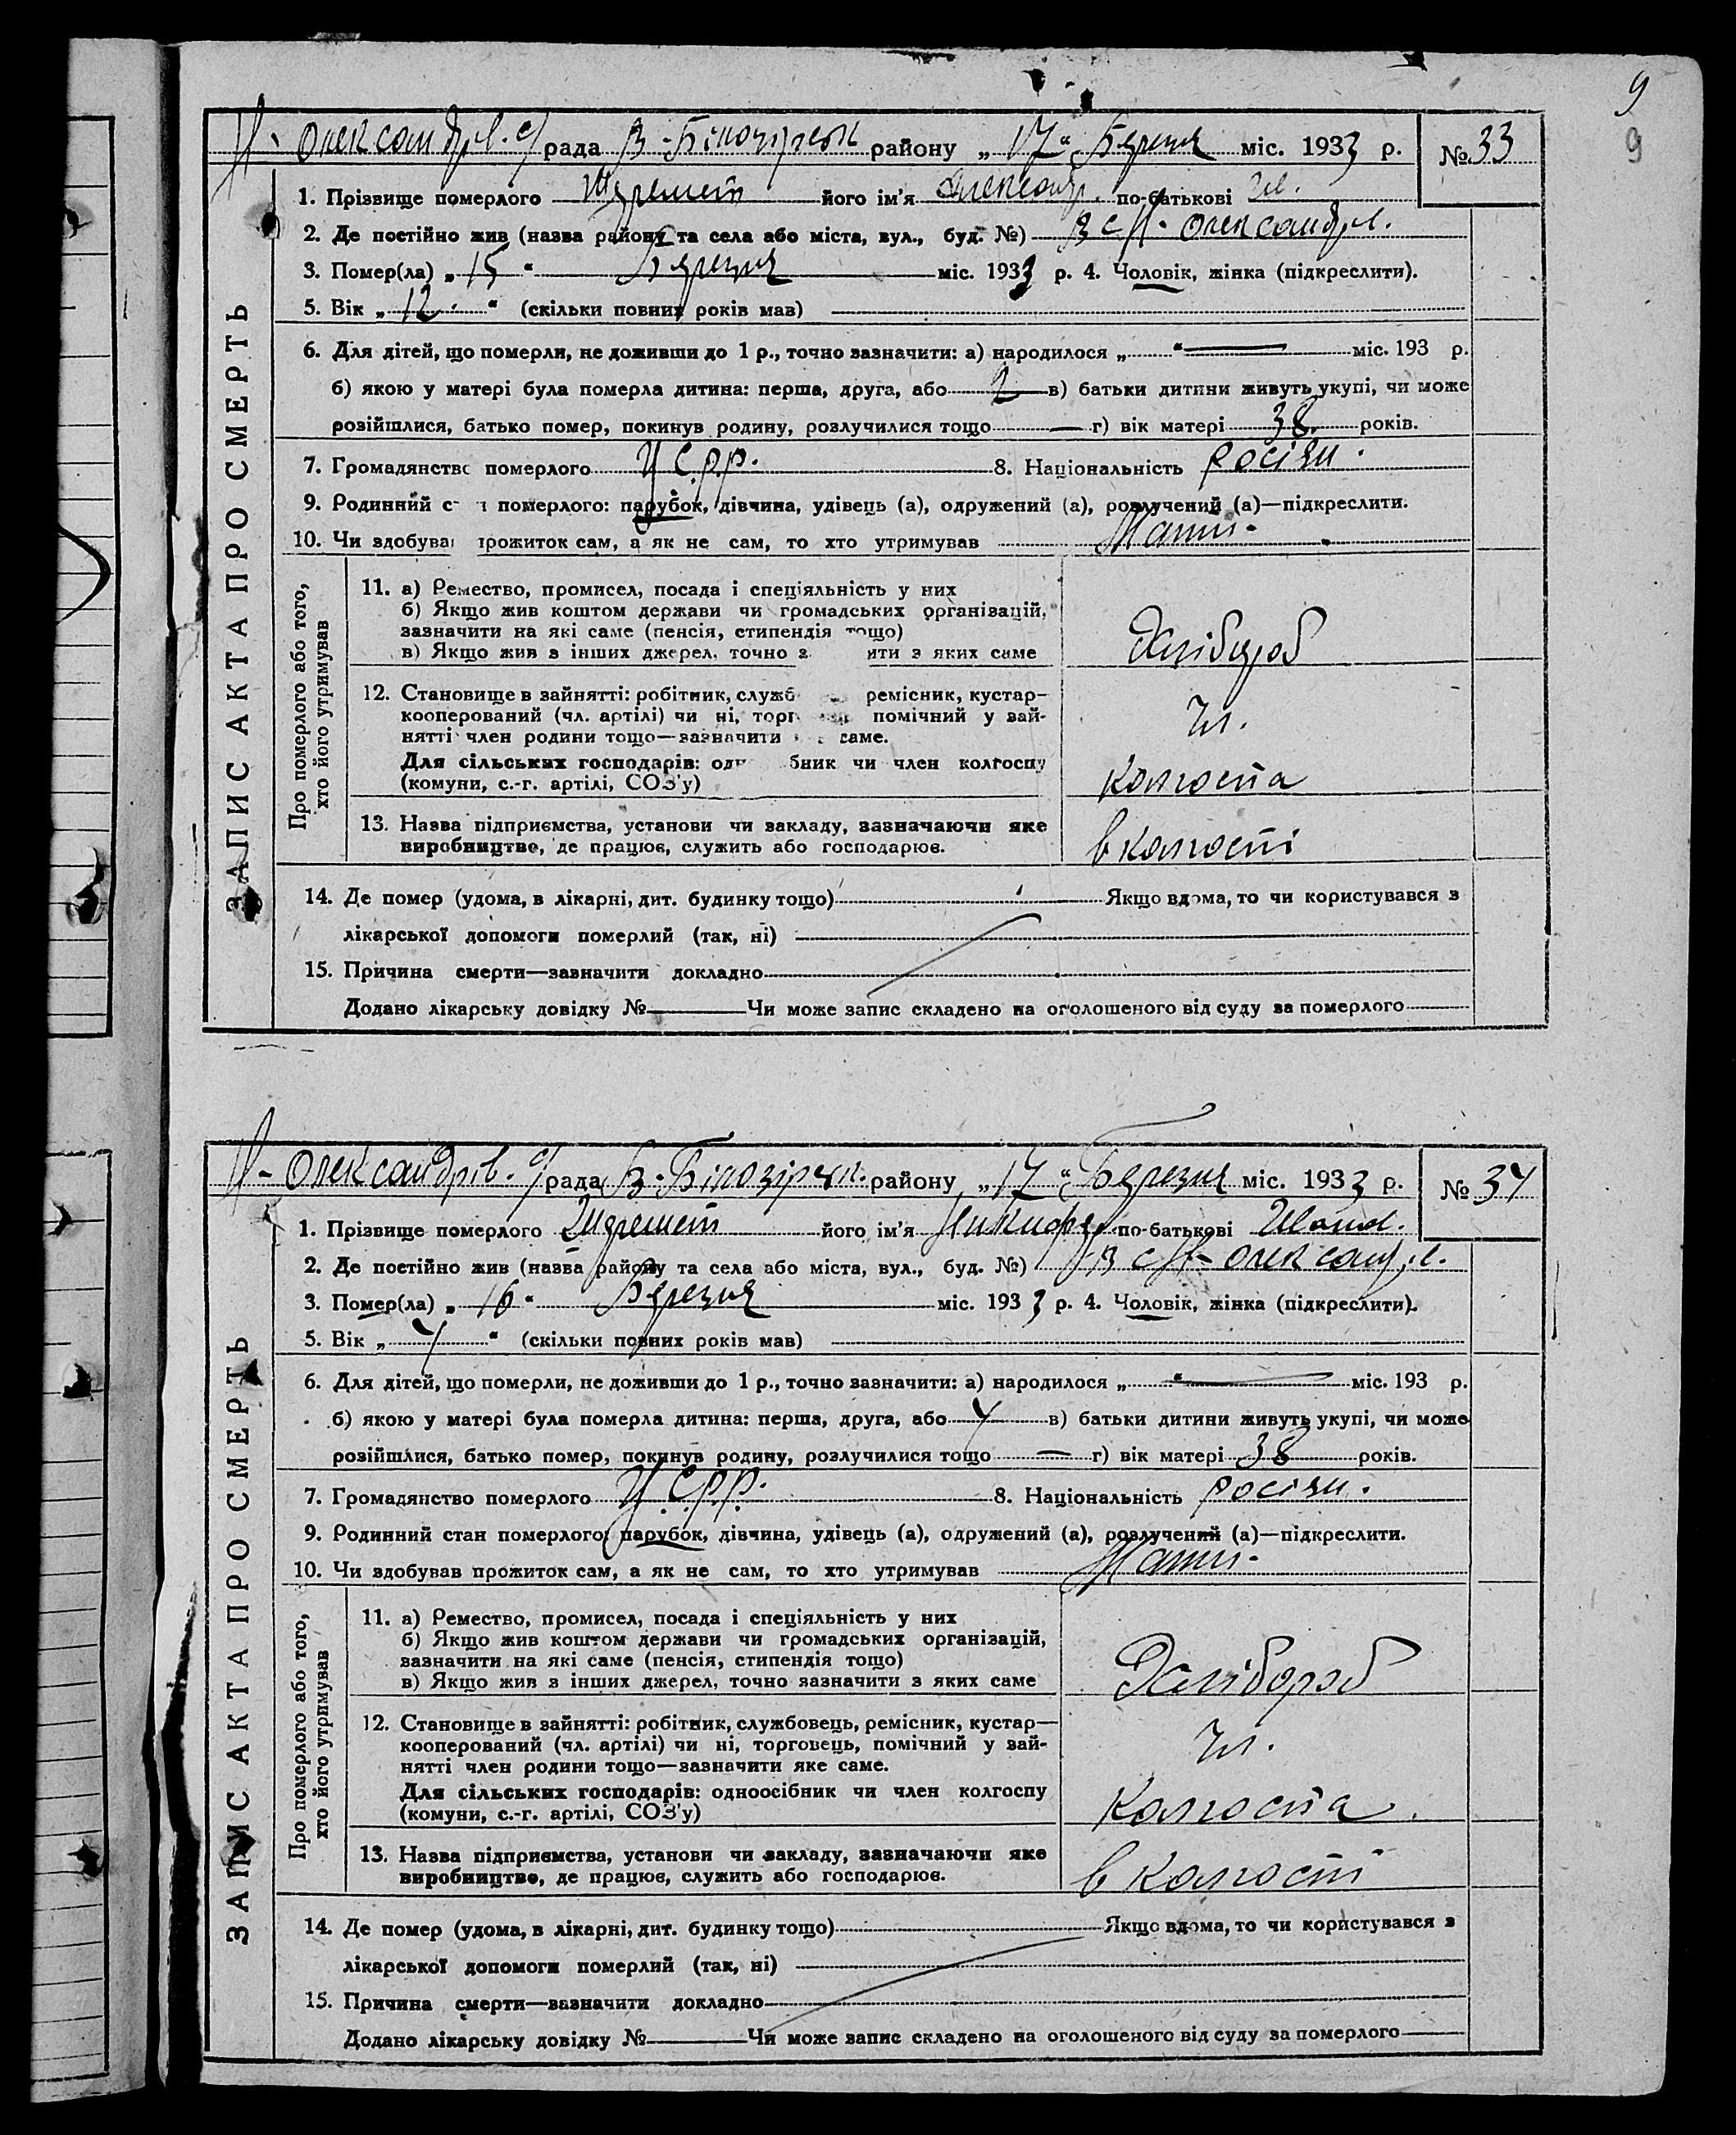 9
9
Н-Олександрів. с/рада В-Білозірськ району „17" Березня міс. 1933 р. № 33
1. Прізвище померлого Шеремет його ім'я Олександр. по-батькові Ів.
2. Де постійно жив (назва району та села або міста, вул., буд. №) В с Н-Олександр.
3. Помер(ла) „15" Березня міс. 1933 р. 4. Чоловік, жінка (підкреслити).
5. Вік „12" (скільки повних років мав)
6. Для дітей, що померли, не доживши до 1 р., точно зазначити: а) народилося „ " — міс. 193 р.
б) якою у матері була померла дитина: перша, друга, або 2 в) батьки дитини живуть укупі, чи може
розійшлися, батько помер, покинув родину, розлучилися тощо — г) вік матері 38. років.
7. Громадянство померлого УСРР. 8. Національність росіян.
9. Родинний с н померлого: парубок, дівчина, удівець (а), одружений (а), розлучений (а)—підкреслити.
10. Чи здобував прожиток сам, а як не сам, то хто утримував Мати-
ЗАПИС АКТА ПРО СМЕРТЬ
Про померлого або того, хто його утримував
11. а) Ремество, промисел, посада і спеціяльність у них
б) Якщо жив коштом держави чи громадських організацій,
зазначити на які саме (пенсія, стипендія тощо)
в) Якщо жив з інших джерел, точно з ити з яких саме
Хлібороб
12. Становище в зайнятті: робітник, служб ремісник, кустар—
кооперований (чл. артілі) чи ні, торг помічний у зай-
нятті член родини тощо—зазначити саме.
Для сільських господарів: од бник чи член колгоспу
(комуни, с.-г. артілі, СОЗ'у)
Чл.
колгоспа
13. Назва підприємства, установи чи закладу, зазначаючи яке
виробництво, де працює, служить або господарює.
в колгоспі
14. Де помер (удома, в лікарні, дит. будинку тощо) Якщо вдома, то чи користувався з
лікарської допомоги померлий (так, ні)
15. Причина смерти—зазначити докладно
Додано лікарську довідку № Чи може запис складено на оголошеного від суду за померлого
Н-Олександрів. с/рада В-Білозірськ. району „17" Березня міс. 1933 р. № 34
1. Прізвище померлого Шеремет його ім'я Никифор по-батькові Іванов.
2. Де постійно жив (назва району та села або міста, вул., буд. №) В с Н-Олександр.
3. Помер(ла) „16" Березня міс. 1933 р. 4. Чоловік, жінка (підкреслити).
5. Вік „4" (скільки повних років мав)
6. Для дітей, що померли, не доживши до 1 р., точно зазначити: а) народилося „ " — міс. 193 р.
б) якою у матері була померла дитина: перша, друга, або 4 в) батьки дитини живуть укупі, чи може
розійшлися, батько помер, покинув родину, розлучилися тощо — г) вік матері 38 років.
7. Громадянство померлого У.С.Р.Р. 8. Національність росіян.
9. Родинний стан померлого: парубок, дівчина, удівець (а), одружений (а), розлучений (а)—підкреслити.
10. Чи здобував прожиток сам, а як не сам, то хто утримував Мати-
ЗАПИС АКТА ПРО СМЕРТЬ
Про померлого або того, хто його утримував
11. а) Ремество, промисел, посада і спеціяльність у них
б) Якщо жив коштом держави чи громадських організацій,
зазначити на які саме (пенсія, стипендія тощо)
в) Якщо жив з інших джерел, точно зазначити з яких саме
Хлібороб
12. Становище в зайнятті: робітник, службовець, ремісник, кустар—
кооперований (чл. артілі) чи ні, торговець, помічний у зай-
нятті член родини тощо—зазначити яке саме.
Для сільських господарів: одноосібник чи член колгоспу
(комуни, с.-г. артілі, СОЗ'у)
Чл.
колгоспа
13. Назва підприємства, установи чи закладу, зазначаючи яке
виробництво, де працює, служить або господарює.
в колгоспі
14. Де помер (удома, в лікарні, дит. будинку тощо) Якщо вдома, то чи користувався з
лікарської допомоги померлий (так, ні)
15. Причина смерти—зазначити докладно
Додано лікарську довідку № Чи може запис складено на оголошеного від суду за померлого